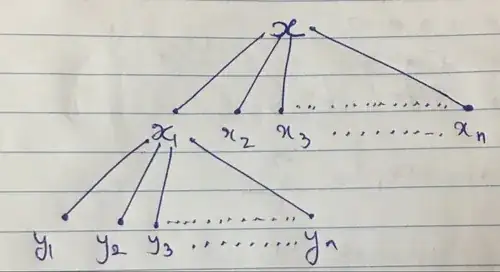 x
x₁ x₂ x₃ ........ xₙ
y₁ y₂ y₃ ........ yₙ